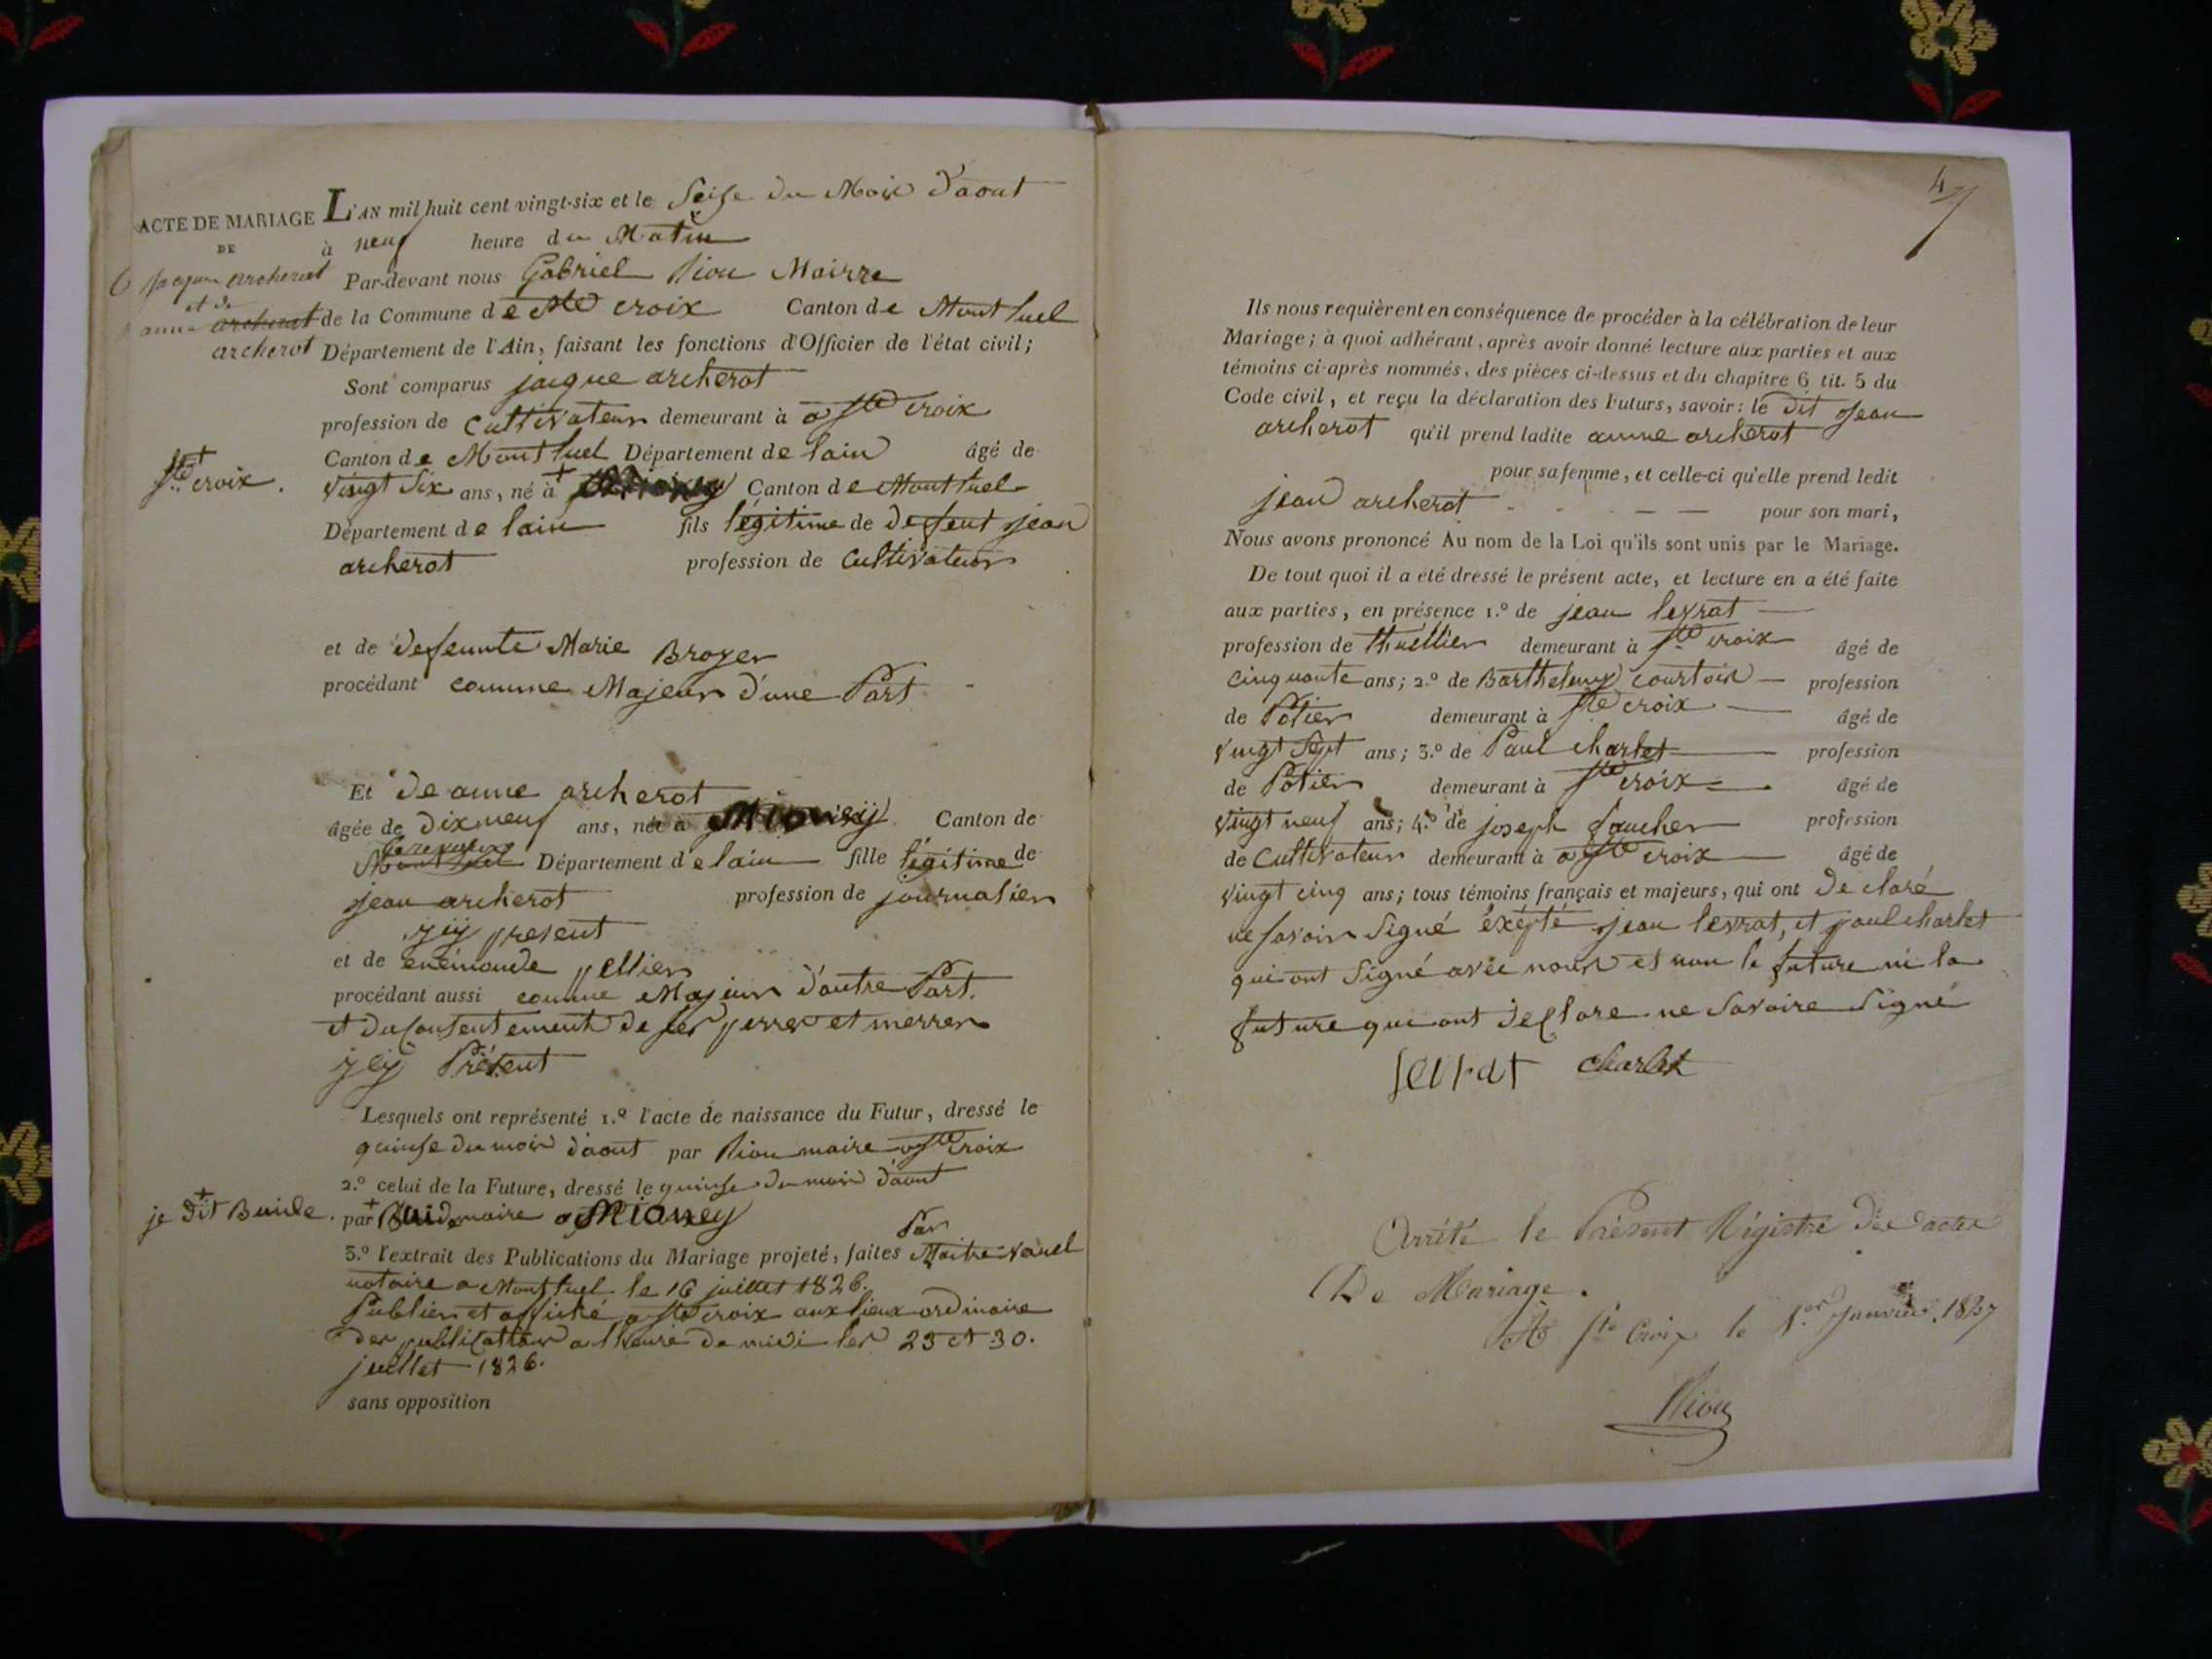 ACTE DE MARIAGE
DE
6 jacque archerot
et de
anne archerot
archerot
L'AN mil huit cent vingt-six et le Seise du Mois d'aout
à neuf heure du Matin
Par-devant nous Gabriel Riou Mairre
de la Commune de Ste croix Canton de Montluel
Département de l'Ain, faisant les fonctions d'Officier de l'état civil;
Sont comparus jacque archerot
profession de Cultivateur demeurant à a Ste croix
Canton de Montluel Département de lain âgé de
+
Ste croix.
vingt Six ans, né à + Canton de Montluel
Département de lain fils légitime de defeut jean
archerot profession de Cultivateur
et de defeunte Marie Broyer
procédant comme Majeur d'une Part
Et de anne archerot
âgée de dixneuf ans, née a Mionexij Canton de
Montluel Département de lain fille légitime de
jean archerot profession de journalier
yij present
et de enémonde pellier
procédant aussi comme Majeur d'autre Part.
et du Consentement de ses perres et merres
yey Présent
Lesquels ont représenté 1.º l'acte de naissance du Futur, dressé le
quinse du mois d'aout par Riou maire a Ste Croix
2.º celui de la Future, dressé le quinse du mois d'aout
+
je dit Buide.
par + Buide maire a Mioney
3.º l'extrait des Publications du Mariage projeté, faites Par Maitre
notaire a Montluel le 16 juillet 1826.
Publier et affiché a Ste croix aux lieux ordinaire
des publication a lheure de midi les 23 et 30.
juillet 1826.
sans opposition
4
Ils nous requièrent en conséquence de procéder à la célébration de leur
Mariage; à quoi adhérant, après avoir donné lecture aux parties et aux
témoins ci-après nommés, des pièces ci-dessus et du chapitre 6 tit. 5 du
Code civil, et reçu la déclaration des Futurs, savoir: le dit Jean
archerot qu'il prend ladite anne archerot
pour sa femme, et celle-ci qu'elle prend ledit
jean archerot - - - — — pour son mari,
Nous avons prononcé Au nom de la Loi qu'ils sont unis par le Mariage.
De tout quoi il a été dressé le présent acte, et lecture en a été faite
aux parties, en présence 1.º de jean levrat —
profession de thuellier demeurant à Ste croix âgé de
Cinquante ans; 2.º de Barthelemy Courtois — profession
de Potier demeurant à Ste croix — âgé de
vingt Sept ans; 3.º de Paul Charlet — profession
de Potier demeurant à Ste croix — âgé de
vingt neuf ans; 4.º de joseph faucher profession
de Cultivateur demeurant à a Ste croix — âgé de
vingt cinq ans; tous témoins français et majeurs, qui ont declaré
ne Savoir Signé éxépté jean levrat, et paul charlet
qui ont Signé avec nous et non le future ni la
future qui ont declare ne Savoire Signé
levrat charlet
Arrêté le Présent Régistre des actes
De Mariage.
A Ste Croix le 1.er Janvier 1827
Riou